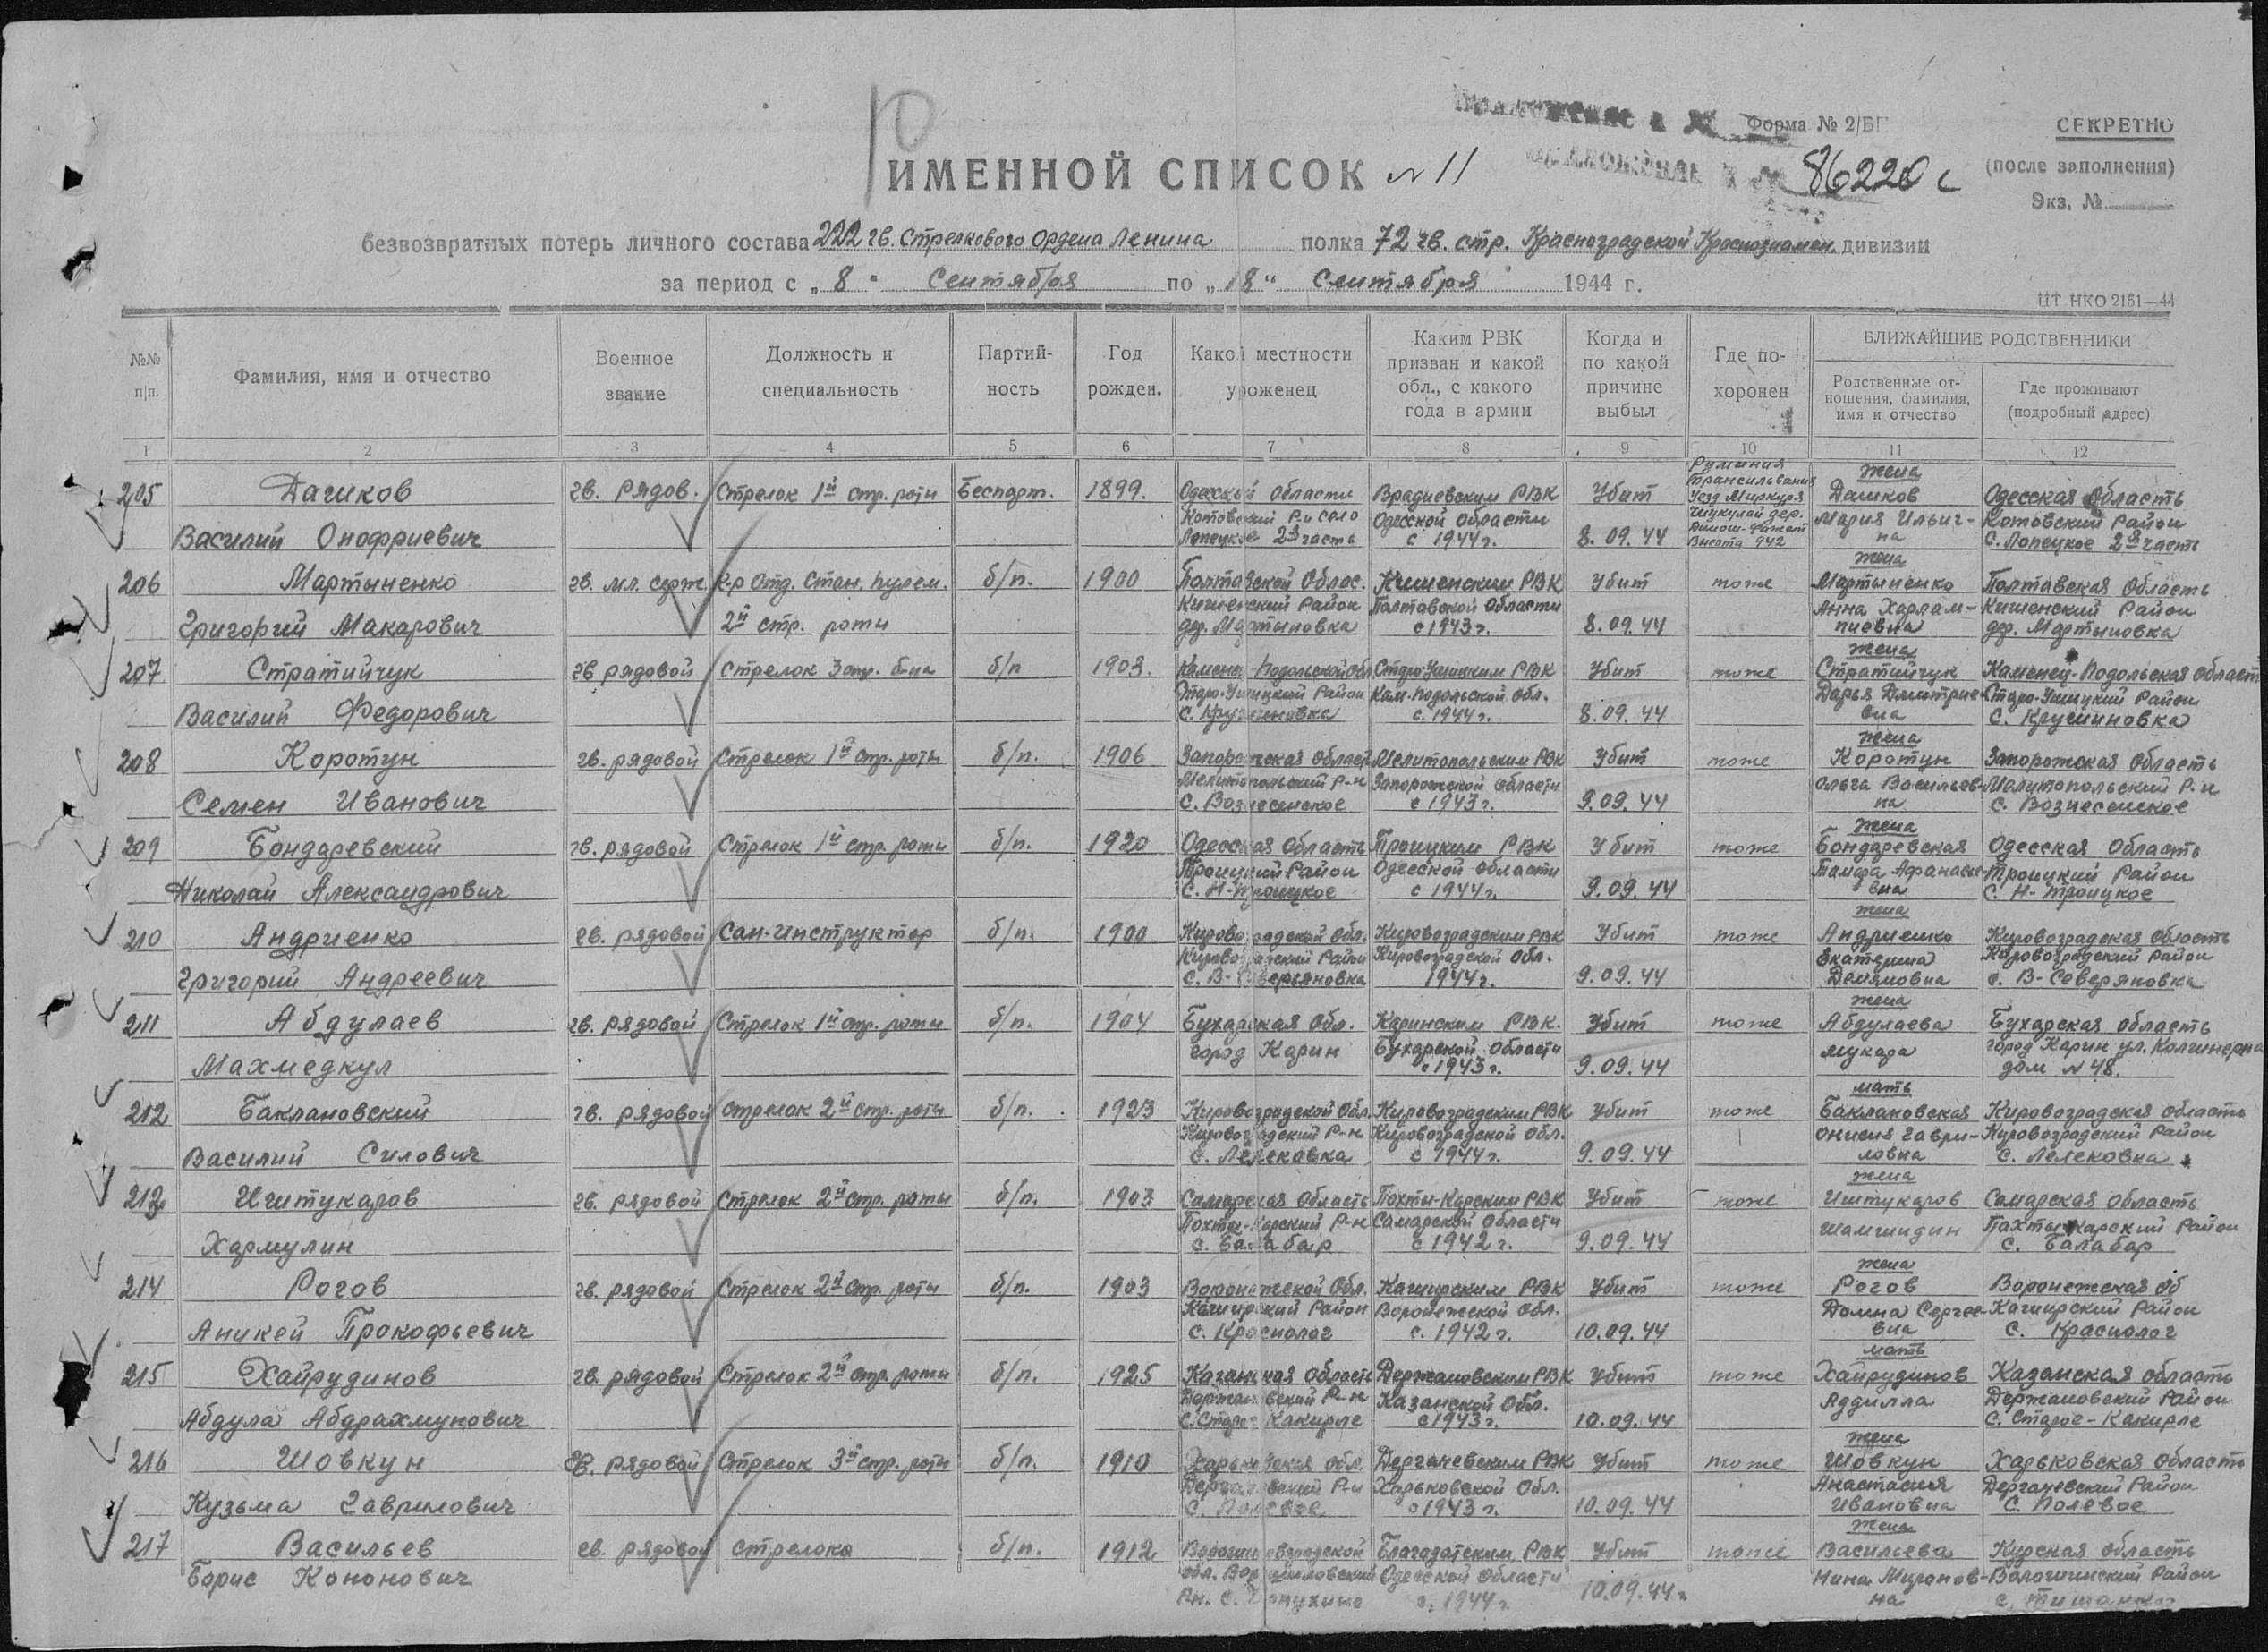 Форма № 2/БП
СЕКРЕТНО
(после заполнения)
Экз. №
86220 с
ИМЕННОЙ СПИСОК № 11
безвозвратных потерь личного состава 222 гв. Стрелкового Ордена Ленина полка 72 гв. стр. Красноградской Краснознамен. дивизии
за период с „8“ Сентября по „18“ Сентября 1944 г.
ЦТ НКО 2151—44
№№ п/п. Фамилия, имя и отчество Военное звание Должность и специальность Партий-ность Год рожден. Какой местности уроженец Каким РВК призван и какой обл., с какого года в армии Когда и по какой причине выбыл Где по-хоронен БЛИЖАЙШИЕ РОДСТВЕННИКИ
Родственные от-ношения, фамилия, имя и отчество Где проживают (подробный адрес)
1 2 3 4 5 6 7 8 9 10 11 12
Румыния Трансильвания Уезд высота 942 жена
205 Дашков гв. рядов. Стрелок 1й стр. роты Беспарт. 1899. Одесской области Врадиевским РВК Убит Дашков Одесская область
Котовский Р-н село Одесской области Мария Ильич- Котовский Район
Василий Онофриевич Лопецкое 2я часть с 1944 г. 8.09.44 на с. Лопецкое 2я часть
жена
206 Мартыненко гв. мл. серж. К-р Отд. Стан. пулем. б/п. 1900 Полтавской Облас. Кишенским РВК Убит тоже Мартыненко Полтавская Область
Кишенский Район Полтавской Области Анна Харлам- Кишенский Район
Григорий Макарович 2й стр. роты дер. Мартыновка с 1943 г. 8.09.44 пиевна дер. Мартыновка
жена
207 Стратийчук гв рядовой Стрелок 3 стр. б-на б/п 1903. Каменец-Подольской обл Старо-Ушицким РВК Убит тоже Стратийчук Каменец-Подольская Област
Старо-Ушицкий Район Кам-Подольской обл. Дарья Дмитрие- Старо-Ушицкий Район
Василий Федорович с. Крушиновка с. 1944 г. 8.09.44 вна с. Крушиновка
жена
208 Коротун гв. рядовой Стрелок 1й стр. роты б/п. 1906 Запорожская област Мелитопольским РВК Убит тоже Коротун Запорожская Область
Мелитопольский Р-н Запорожской области Ольга Васильев- Мелитопольский Р-н
Семен Иванович с. Вознесенское с 1943 г. 9.09.44 на с. Вознесенское
жена
209 Бондаревский гв. рядовой Стрелок 1й стр. роты б/п. 1920 Одесская Область Троицким РВК Убит тоже Бондаревская Одесская Область
Троицкий Район Одесской области Афанасие- Троицкий Район
Николай Александрович с. Н-Троицкое с 1944 г. 9.09.44 вна с. Н-Троицкое
жена
210 Андриенко гв. рядовой Сан-инструктор б/п. 1900 Кировоградской обл. Кировоградским РВК Убит тоже Андриенко Кировоградская Область
Кировоградский Район Кировоградской обл. Екатерина Кировоградский Район
Григорий Андреевич с. В-Северьяновка 1944 г. 9.09.44 Демяновна с. В-Северяновка
жена
211 Абдулаев гв. рядовой Стрелок 1й стр. роты б/п. 1904 Бухарская Обл. Каринским РВК. Убит тоже Абдулаева Бухарская область
город Карин Бухарской области мукара город Карин ул.
Махмедкул с 1943 г. 9.09.44 дом № 48.
мать
212 Баклановский гв. рядовой стрелок 2й стр. роты б/п. 1923 Кировоградской Обл. Кировоградским РВК Убит тоже Баклановская Кировоградская область
Кировоградский Р-н Кировоградской обл. Онисия Гаври- Кировоградский Район
Василий Силович с. Лелековка с 1944 г. 9.09.44 ловна с. Лелековка
жена
213 Иштукаров гв. рядовой Стрелок 2й стр. роты б/п. 1903 Самарская Область Похты-Карским РВК Убит тоже Иштукаров Самарская Область
Похты-Карский Р-н Самарской Области Шамшидин Пахты-карский Район
Хармулин с. Балабар с 1942 г. 9.09.44 с. Балабар
жена
214 Рогов гв. рядовой Стрелок 2й стр. роты б/п. 1903 Воронежской Обл. Каширским РВК Убит тоже Рогов Воронежская об
Каширский Район Воронежской Обл. Домна Сергее- Каширский Район
Аникей Прокофьевич с. Краснолог с. 1942 г. 10.09.44 вна с. Краснолог
мать
215 Хайрудинов гв. рядовой Стрелок 2й стр. роты б/п. 1925 Казанская область Держановским РВК Убит тоже Хайрудинов Казанская область
Держановский Р-н Казанской Обл. Аддилла Держановский Район
Абдула Абдрахмунович с. Старое Какирле с 1943 г. 10.09.44 с. Старое-Какирле
жена
216 Шовкун гв. рядовой Стрелок 3й стр. роты б/п. 1910 Харьковская обл. Дергачевским РВК Убит тоже Шовкун Харьковская область
Дергачевский Р-н Харьковской Обл. Анастасия Дергачевский Район
Кузьма Гаврилович с. Полевое с 1943 г. 10.09.44 Ивановна с. Полевое
жена
217 Васильев гв. рядовой стрелока б/п. 1912 Ворошиловградской Благодатским РВК Убит тоже Васильева Курская область
Борис Кононович обл. Ворошиловский Одесской Области Нина Миронов- Район
Р-н. с. с. 1944 г. 10.09.44 г. на с.